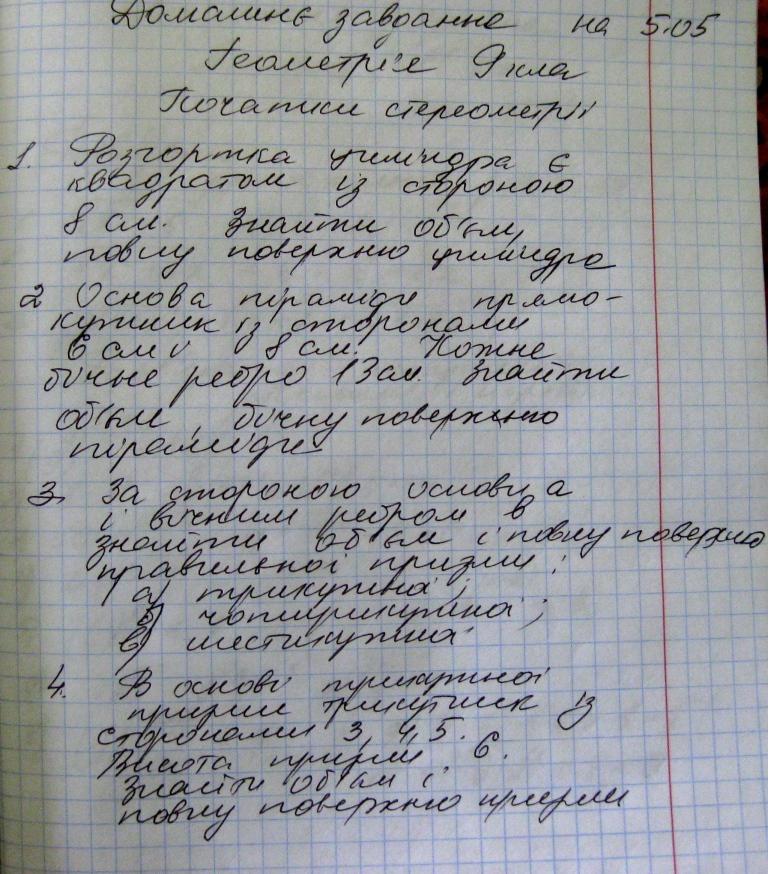 Домашнє завдання на 5.05
Геометрія 9 клас
Початки стереометрії
1. Розгортка циліндра є
квадратом із стороною
8 см. Знайти об'єм,
повну поверхню циліндра
2 Основа піраміди прямо-
кутник із сторонами
6 см і 8 см. Кожне
бічне ребро 13 см. Знайти
об'єм, бічну поверхню
піраміди
3. За стороною основи а
і бічним ребром в
знайти об'єм і повну поверхню
правильної призми:
а) трикутна;
б) чотирикутна;
в) шестикутна
4. В основі трикутної
призми трикутник із
сторонами 3, 4, 5.
Висота призми 6.
Знайти об'єм і
повну поверхню призми